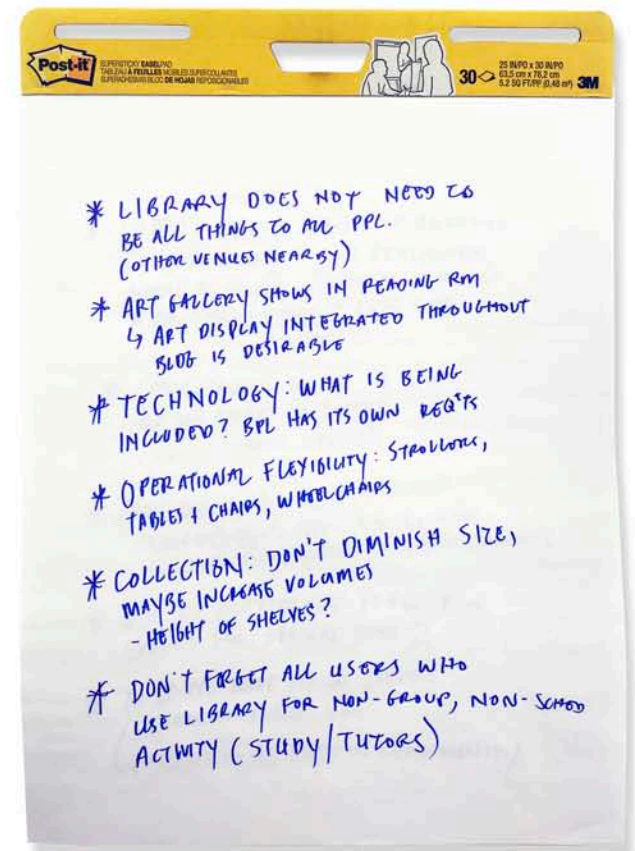 Post-it
SUPERSTICKY EASEL PAD
TABLEAU À FEUILLES MOBILES SUPERCOLLANTES
SUPERADHESIVAS BLOC DE HOJAS REPOSICIONABLES
30
25 IN/PO x 30 IN/PO
63,5 cm x 76,2 cm
5.2 SQ FT/PP (0,48 m²)
3M
* LIBRARY DOES NOT NEED TO
BE ALL THINGS TO ALL PPL.
(OTHER VENUES NEARBY)
* ART GALLERY SHOWS IN READING RM
↳ ART DISPLAY INTEGRATED THROUGHOUT
BLDG IS DESIRABLE
* TECHNOLOGY: WHAT IS BEING
INCLUDED? BPL HAS ITS OWN REQ'TS
* OPERATIONAL FLEXIBILITY: STROLLERS,
TABLES + CHAIRS, WHEELCHAIRS
* COLLECTION: DON'T DIMINISH SIZE,
MAYBE INCREASE VOLUMES
- HEIGHT OF SHELVES?
* DON'T FORGET ALL USERS WHO
USE LIBRARY FOR NON-GROUP, NON-SCHED
ACTIVITY (STUDY/TUTORS)